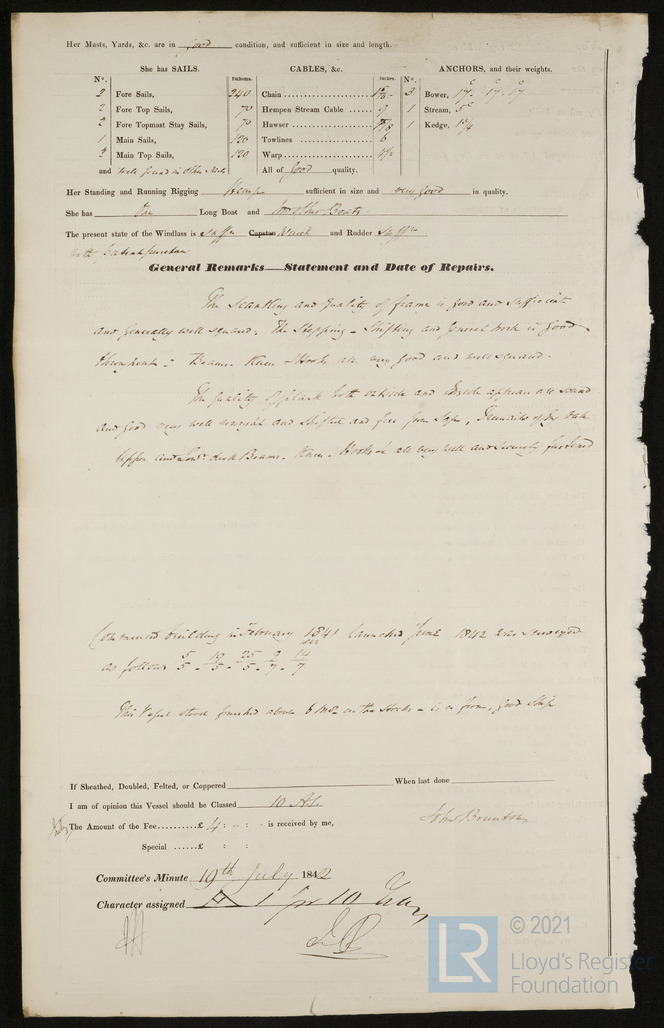 Her Masts, Yards, &c. are in good condition, and sufficient in size and length.
She has SAILS.
CABLES, &c.
ANCHORS, and their weights.
No. Fathoms. Inches. No.
2 Fore Sails, 240 Chain 3 Bower, 17. 17. 17
2 Fore Top Sails, 70 Hempen Stream Cable 9 1 Stream, 5
2 Fore Topmast Stay Sails, 70 Hawser 1 Kedge,
1 Main Sails, 120 Towlines 6
2 Main Top Sails, 120 Warp
and well found in other All of good quality.
Her Standing and Running Rigging Hemp sufficient in size and very good in quality.
She has Long Boat and other Boats
The present state of the Windlass is Capstan Winch and Rudder
with patent
General Remarks—Statement and Date of Repairs.
The Scantling and quality of frame is good and sufficient
and generally well squared. The Stopping - Shifting and general work is good
throughout - Beams. Knees - Hooks are very good and well squared.
The quality of plank both outside and inside appears all sound
and good very well and shifted and free from Sap,
Upper and Beams. Knees. Hooks all very well and securely fastened
Commenced building in February 1841 launched June 1842 was surveyed
as follows 5/5 - 19/5 - 25/5 - 9/7 - 14/7
This Vessel stood finished about 6 Mos on the Stocks - is a firm, good Ship
If Sheathed, Doubled, Felted, or Coppered
When last done
I am of opinion this Vessel should be Classed 10 A1
The Amount of the Fee..........£ 4 : - : - is received by me,
Special ......£ : :
John Brunton
Committee's Minute 19th July 1842
Character assigned A 1 for 10 Years
© 2021
LR
Lloyd's Register
Foundation